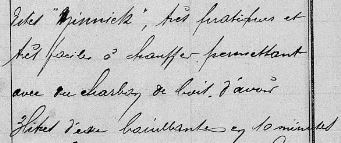 dites "Kinnick", très pratiques et
très faciles à chauffer permettant
avec du charbon de bois d'avoir
litres d'eau bouillante en 10 minutes